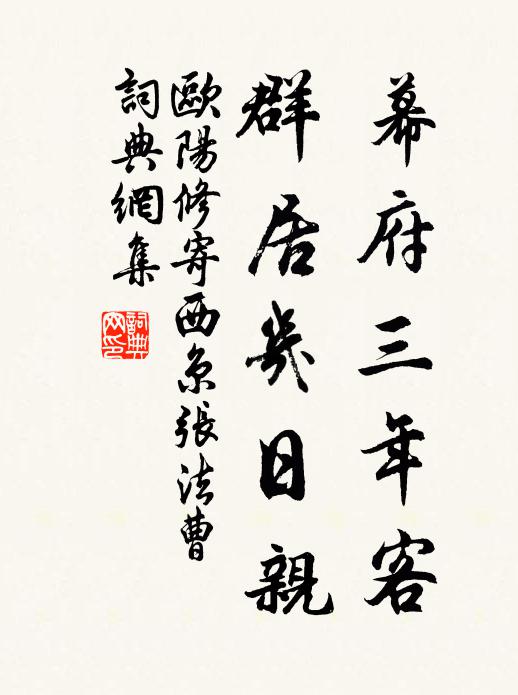 幕府三年客
群居幾日親
歐陽修寄西京張法曹
詞典網集
詞典
网印